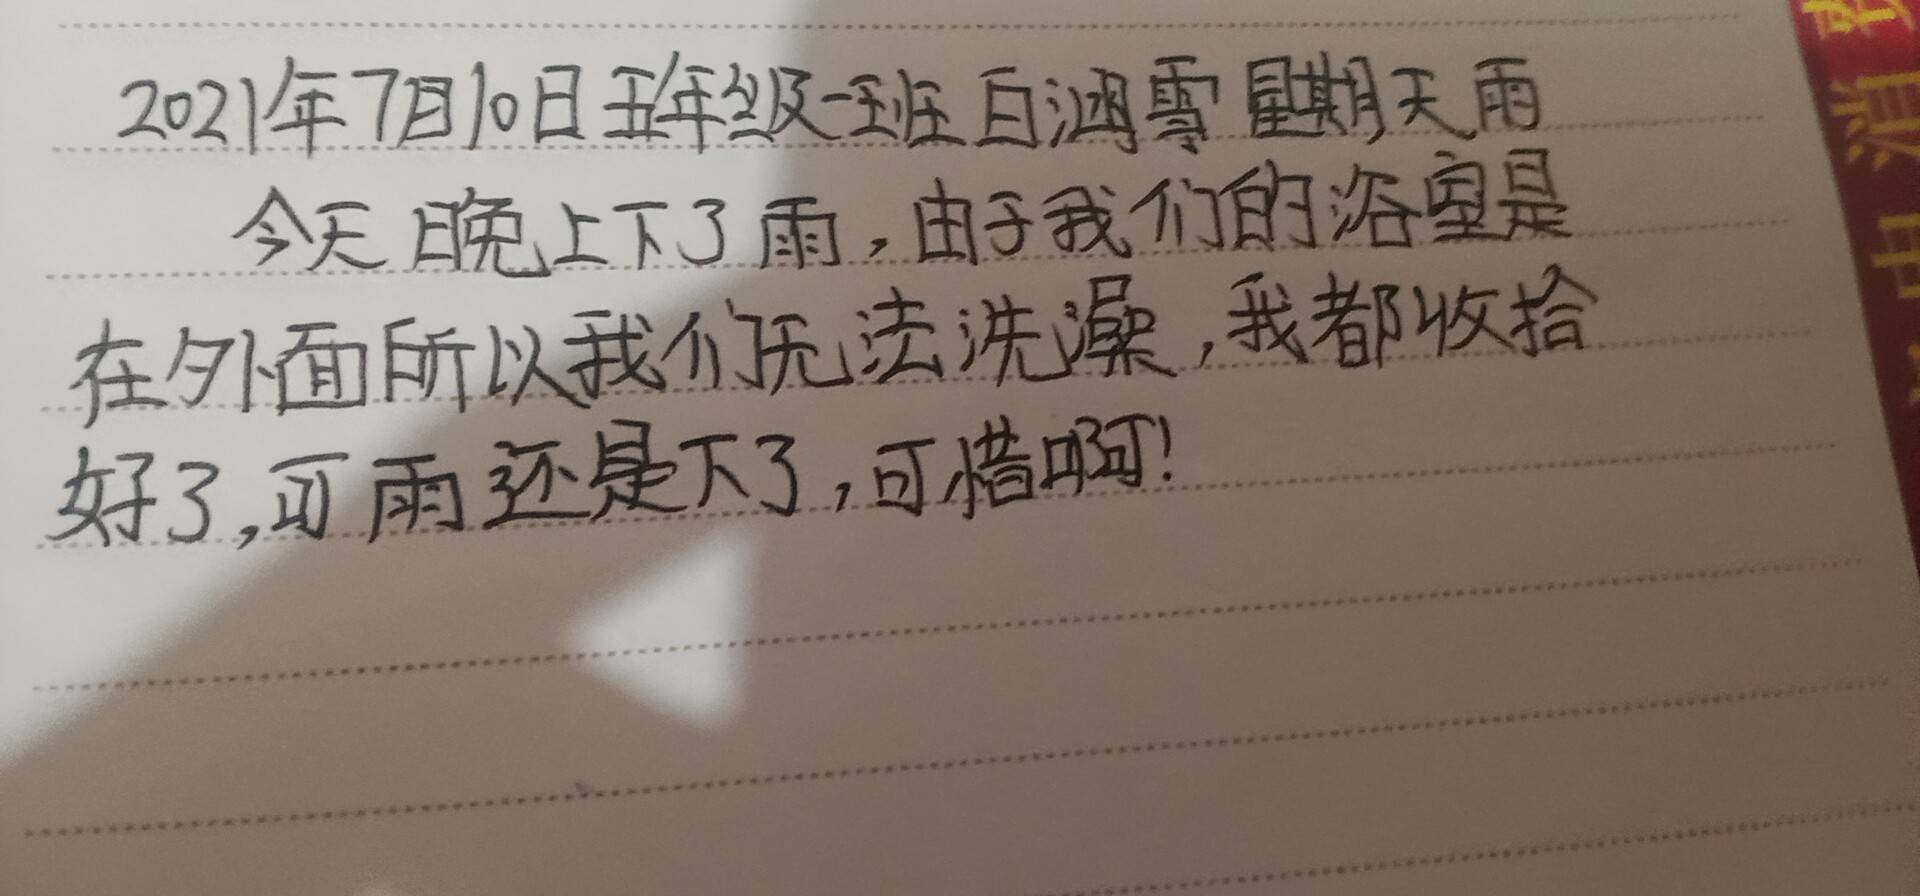 2021年7月10日五年级一班白涵雪星期天雨
今天晚上下了雨，由于我们的浴室是
在外面所以我们无法洗澡，我都收拾
好了，可雨还是下了，可惜啊！